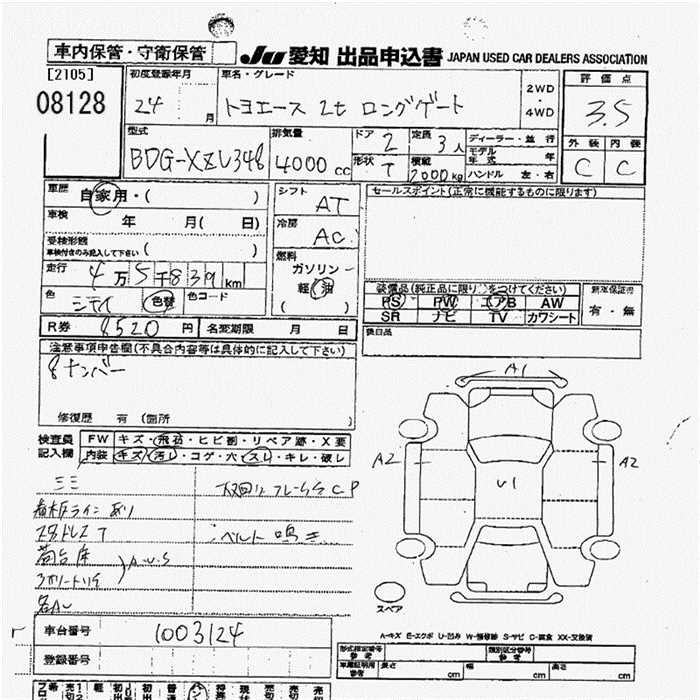 車内保管・守衛保管
JU 愛知 出品申込書 JAPAN USED CAR DEALERS ASSOCIATION
[2105]
08128
初度登録年月
24 月
車名・グレード
トヨエース 2t ロングゲート
2WD
・
4WD
評価点
3.5
型式
BDG-XZU348
排気量
4000 cc
ドア 2
定員 3人
形状 T
積載 2000kg
ディーラー・並行
モデル年式 年
ハンドル 左・右
外装 内装
C C
車歴 自家用・( )
車検 年 月( 日)
受検形態
車検付きのみ記入して下さい ( )
走行 4万5千839 km
色 シロイ 色替 色コード
R券 8520 円 名変期限 月 日
シフト
AT
冷房
AC
燃料
ガソリン
軽油
セールスポイント(正常に機能するものに限ります)
装備品(純正品に限り○をつけてください)
PS PW エアB AW
SR ナビ TV カワシート
新車保証書
有・無
後日品
注意事項申告欄(不具合内容等は具体的に記入して下さい)
8ナンバー
修復歴 有 (箇所
検査員記入欄
FW キズ・飛石・ヒビ割・リペア跡・X要
内装 キズ・汚レ・コゲ・穴・スレ・キレ・破レ
ミミ
看板ライン あり
荷台床
A.U.S
ベルト 鳴き
A1
A2
A2
U1
スペア
A-キズ E-エクボ U-凹み W-補修跡 S-サビ C-腐食 XX-交換済
車台番号 1003124
登録番号
形式指定番号
参考
類別区分番号
参考
車庫証明用
参考
長さ cm 幅 cm 高さ cm